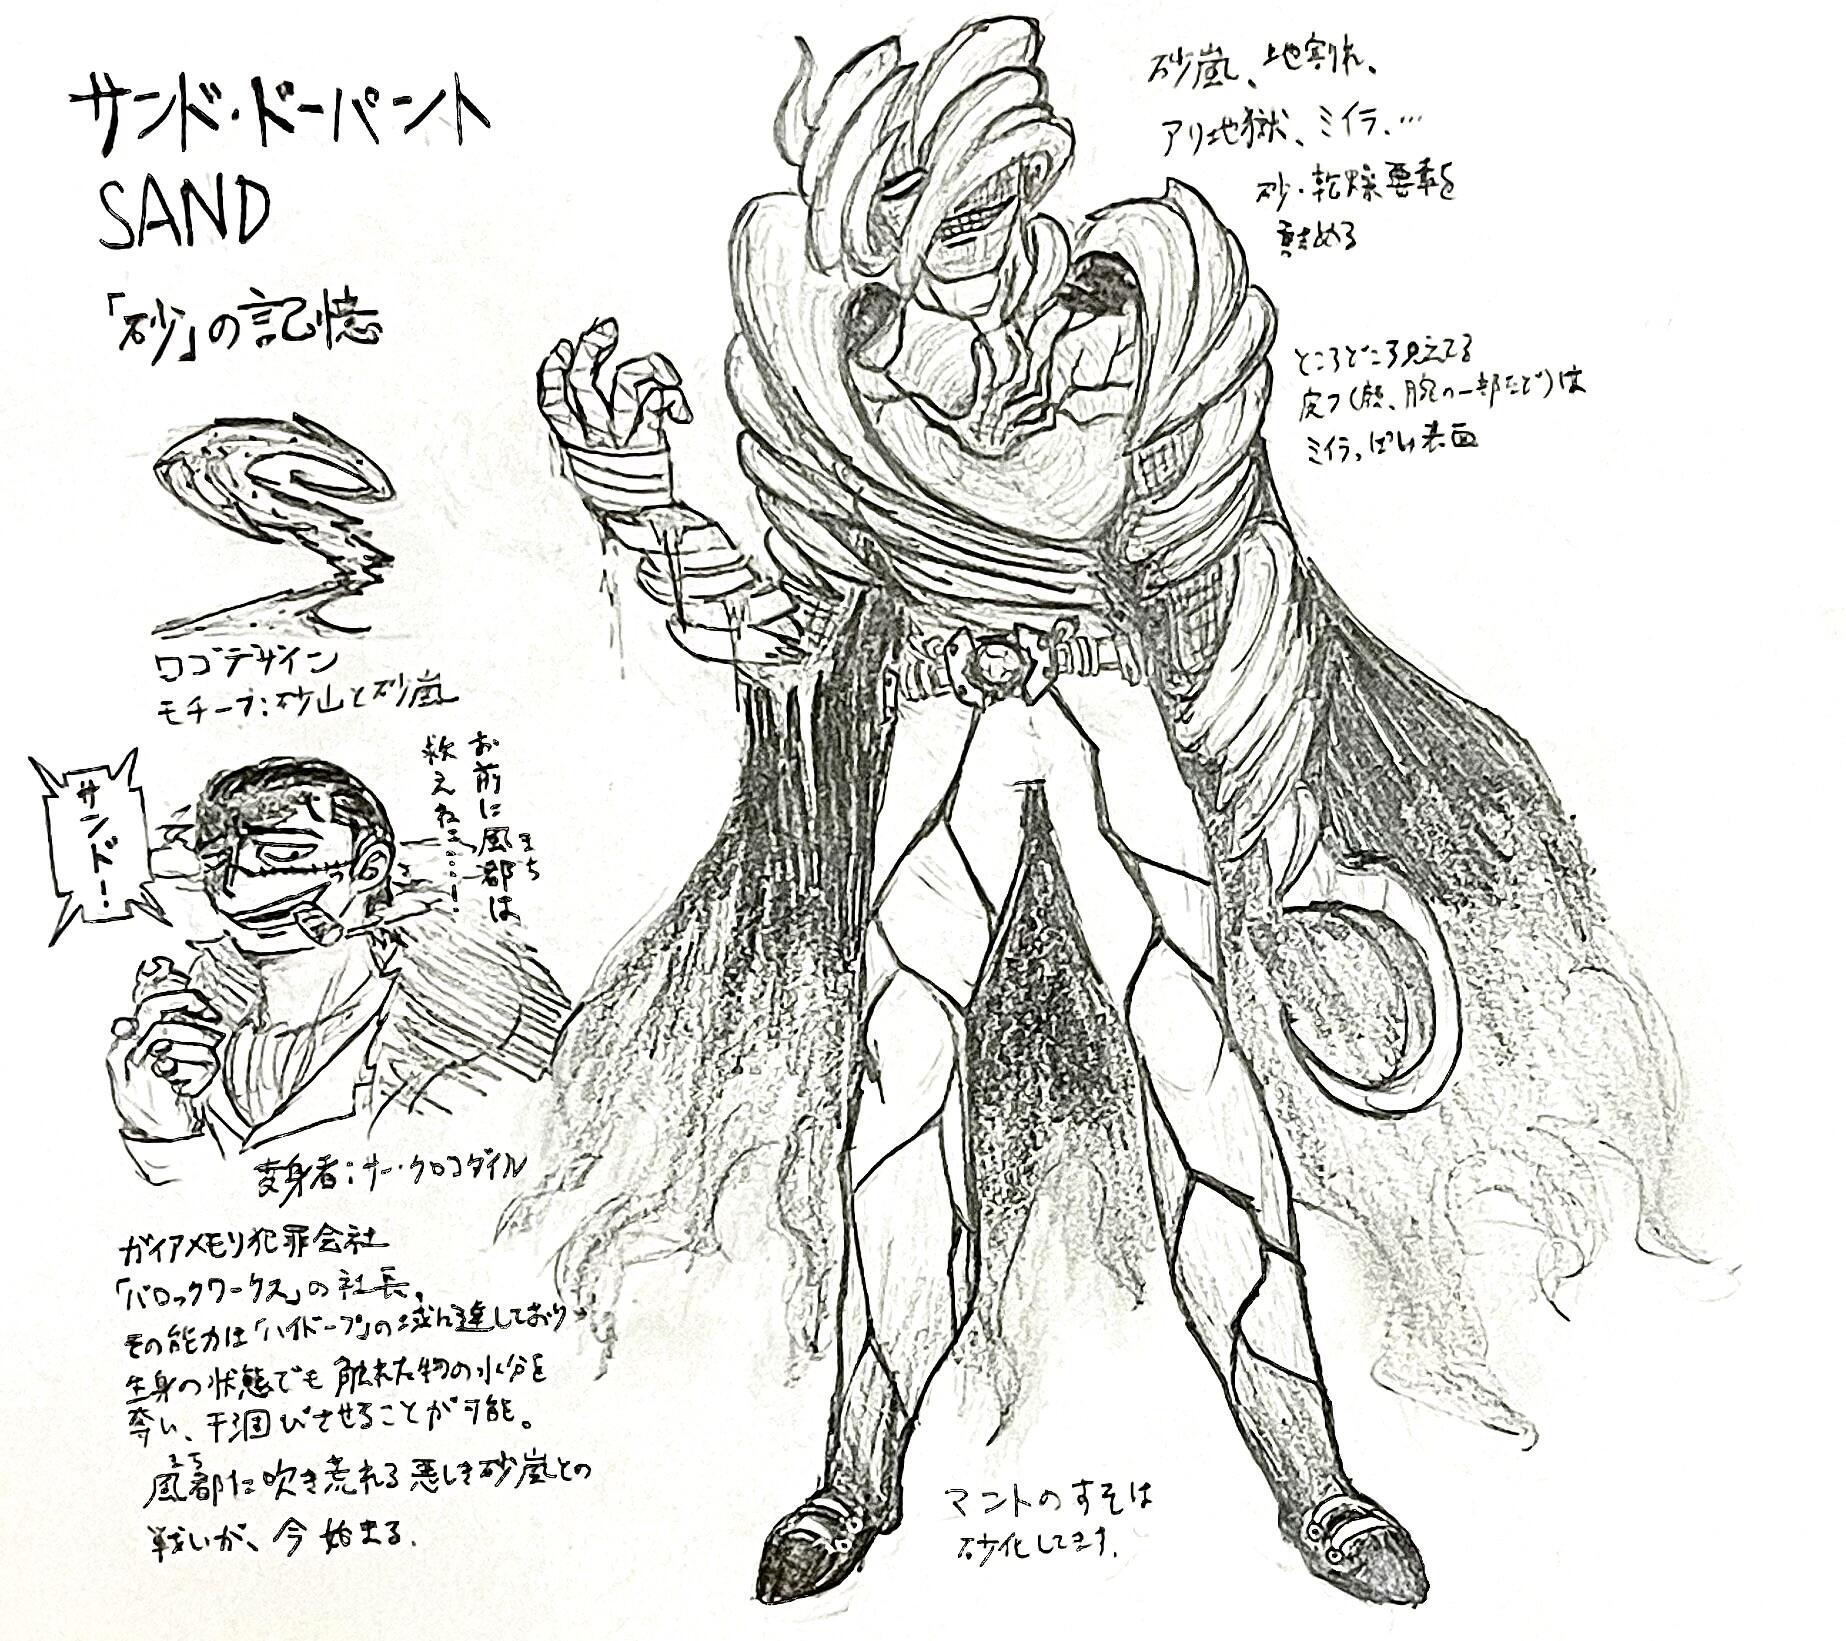 サンド・ドーパント
SAND
「砂」の記憶
ロゴデザイン
モチーフ:砂山と砂嵐
サンド!
お前に風都は
まち
救えねェ……!
変身者:サー・クロコダイル
ガイアメモリ犯罪会社
「バロックワークス」の社長。
その能力は「ハイドープ」の域に達しており
生身の状態でも触れた物の水分を
奪い、干涸びさせることが可能。
まち
風都に吹き荒れる悪しき砂嵐との
戦いが、今始まる。
砂嵐、地割れ、
アリ地獄、ミイラ、…
砂・乾燥要素を
詰める
ところどころ見えてる
皮フ(顔、腕の一部など)は
ミイラっぽい表面
マントのすそは
砂化してます。